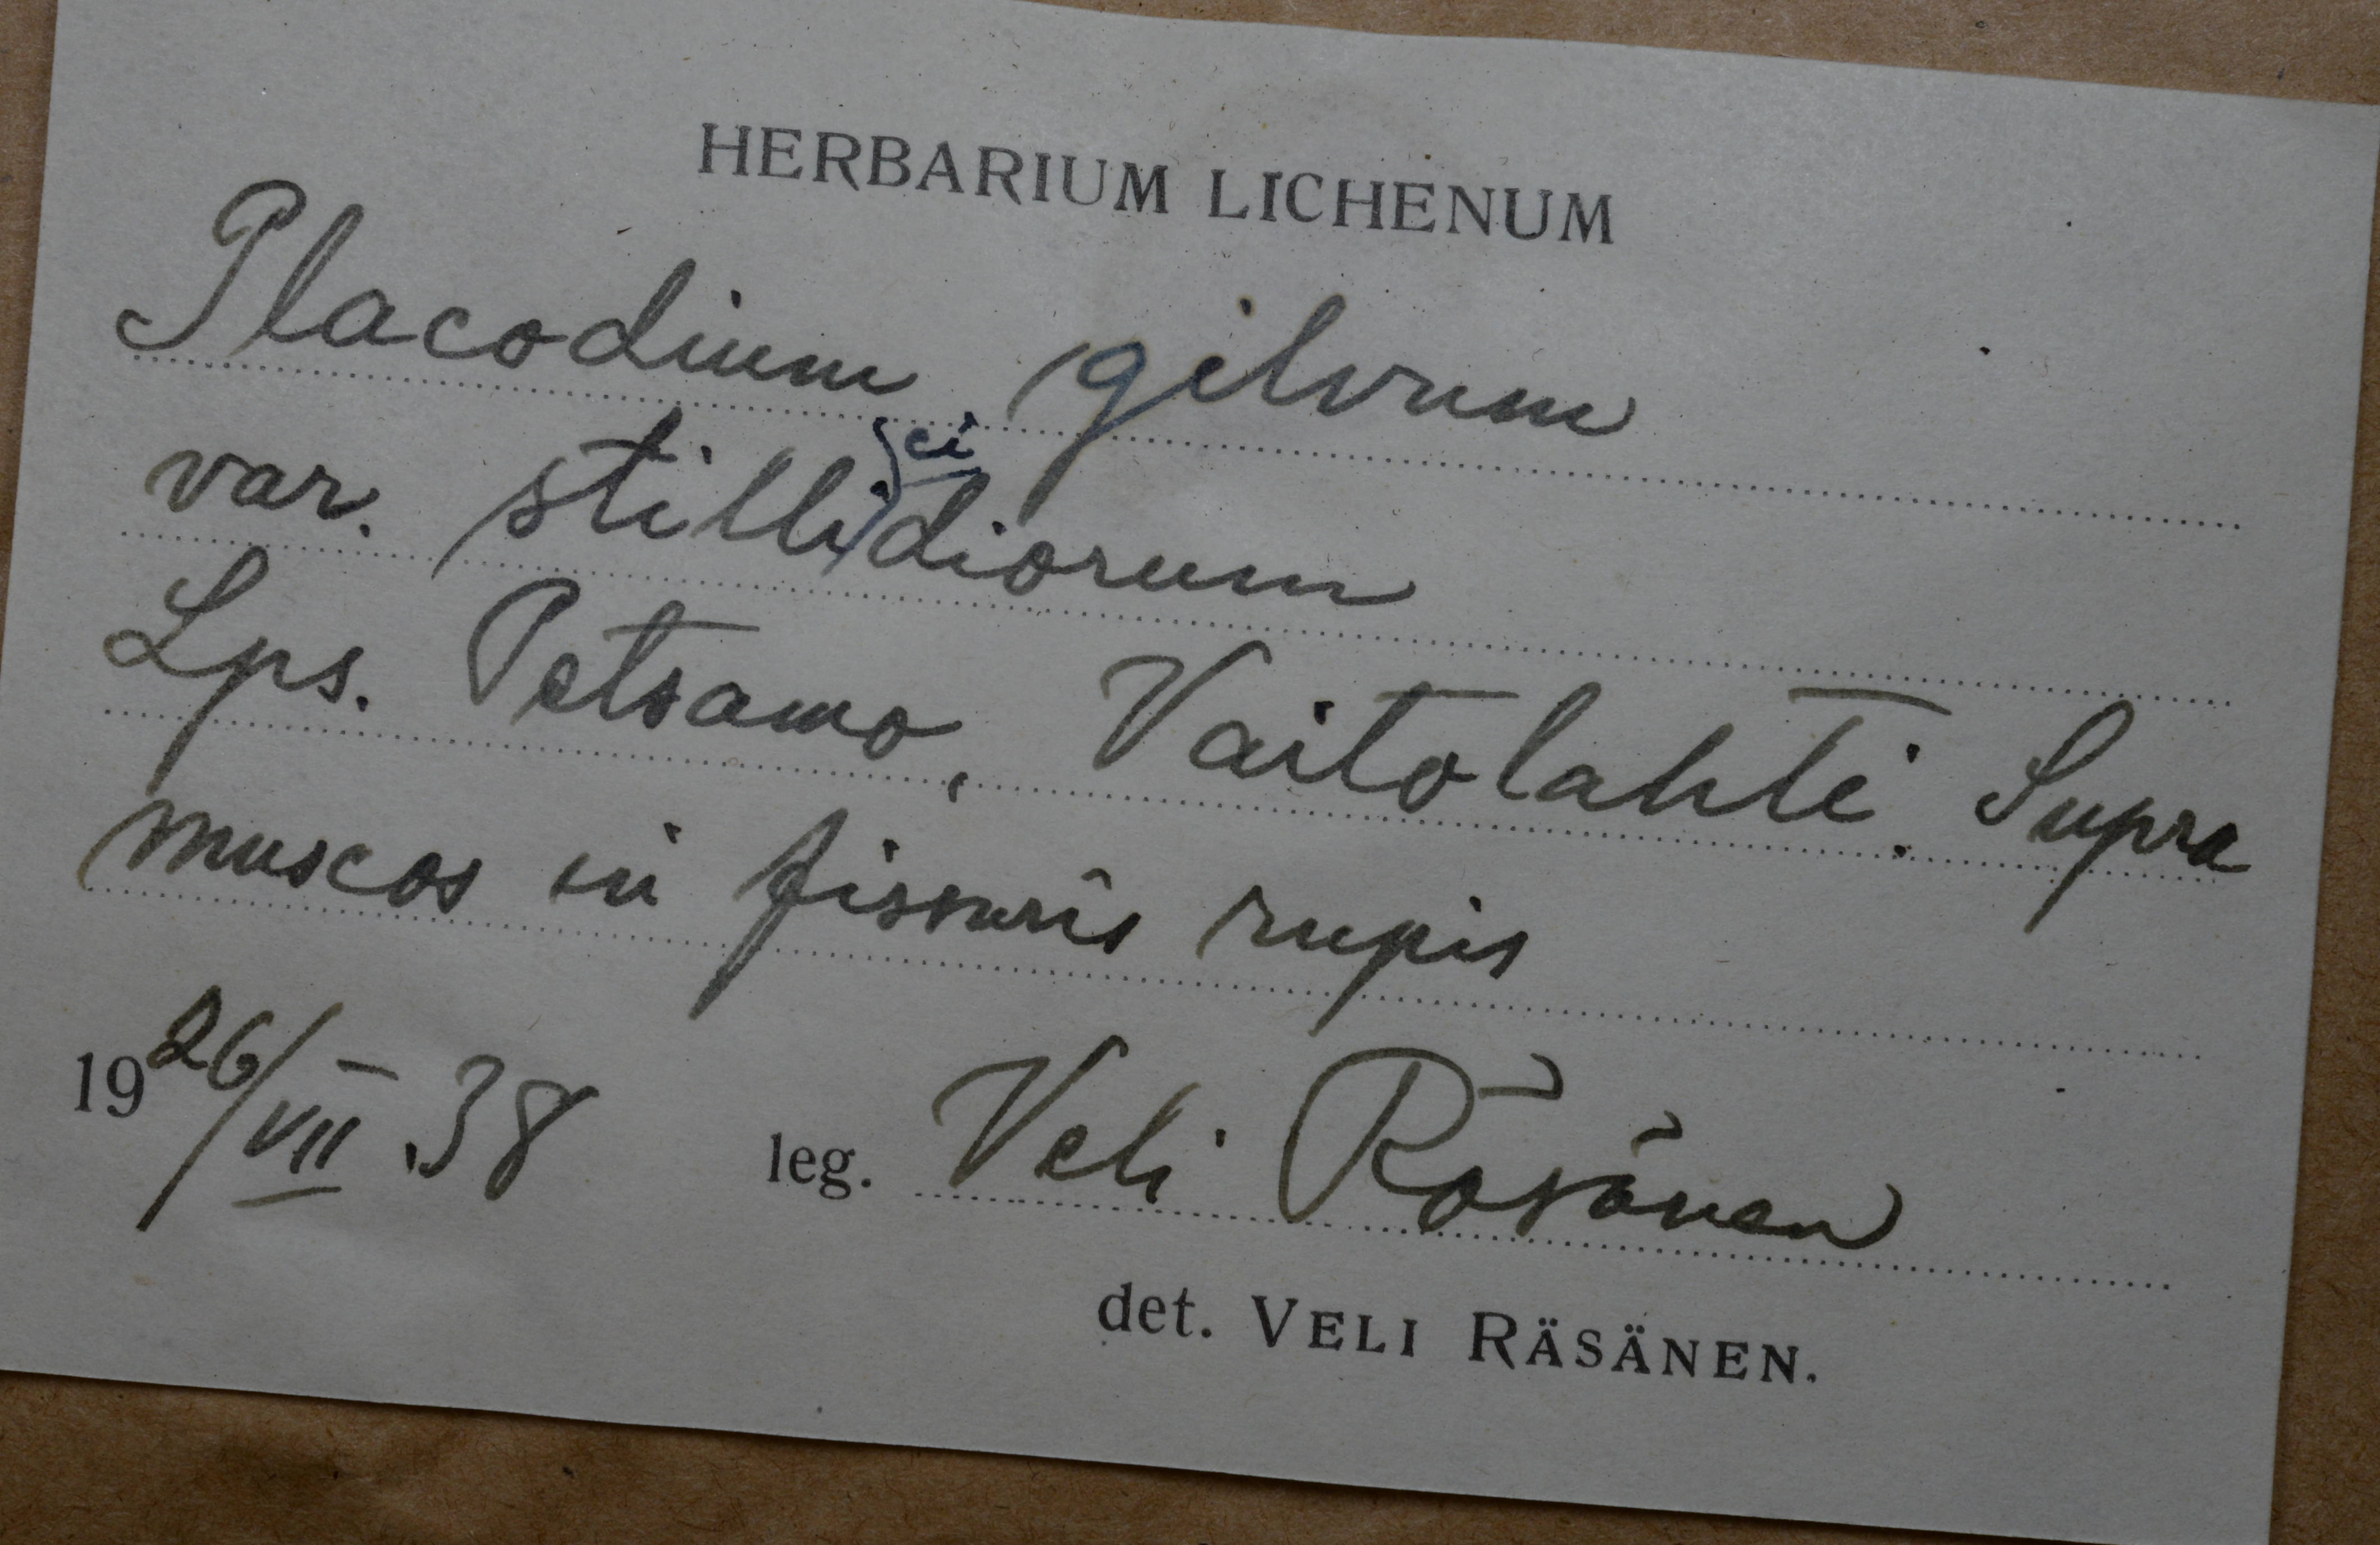 HERBARIUM LICHENUM
Placodium gilvum
var. stillicidiorum
Lps. Petsamo, Vaitolahti. Supra
muscos in fissuris rupis
19 26/VII .38 leg. Veli Räsänen
det. VELI RÄSÄNEN.